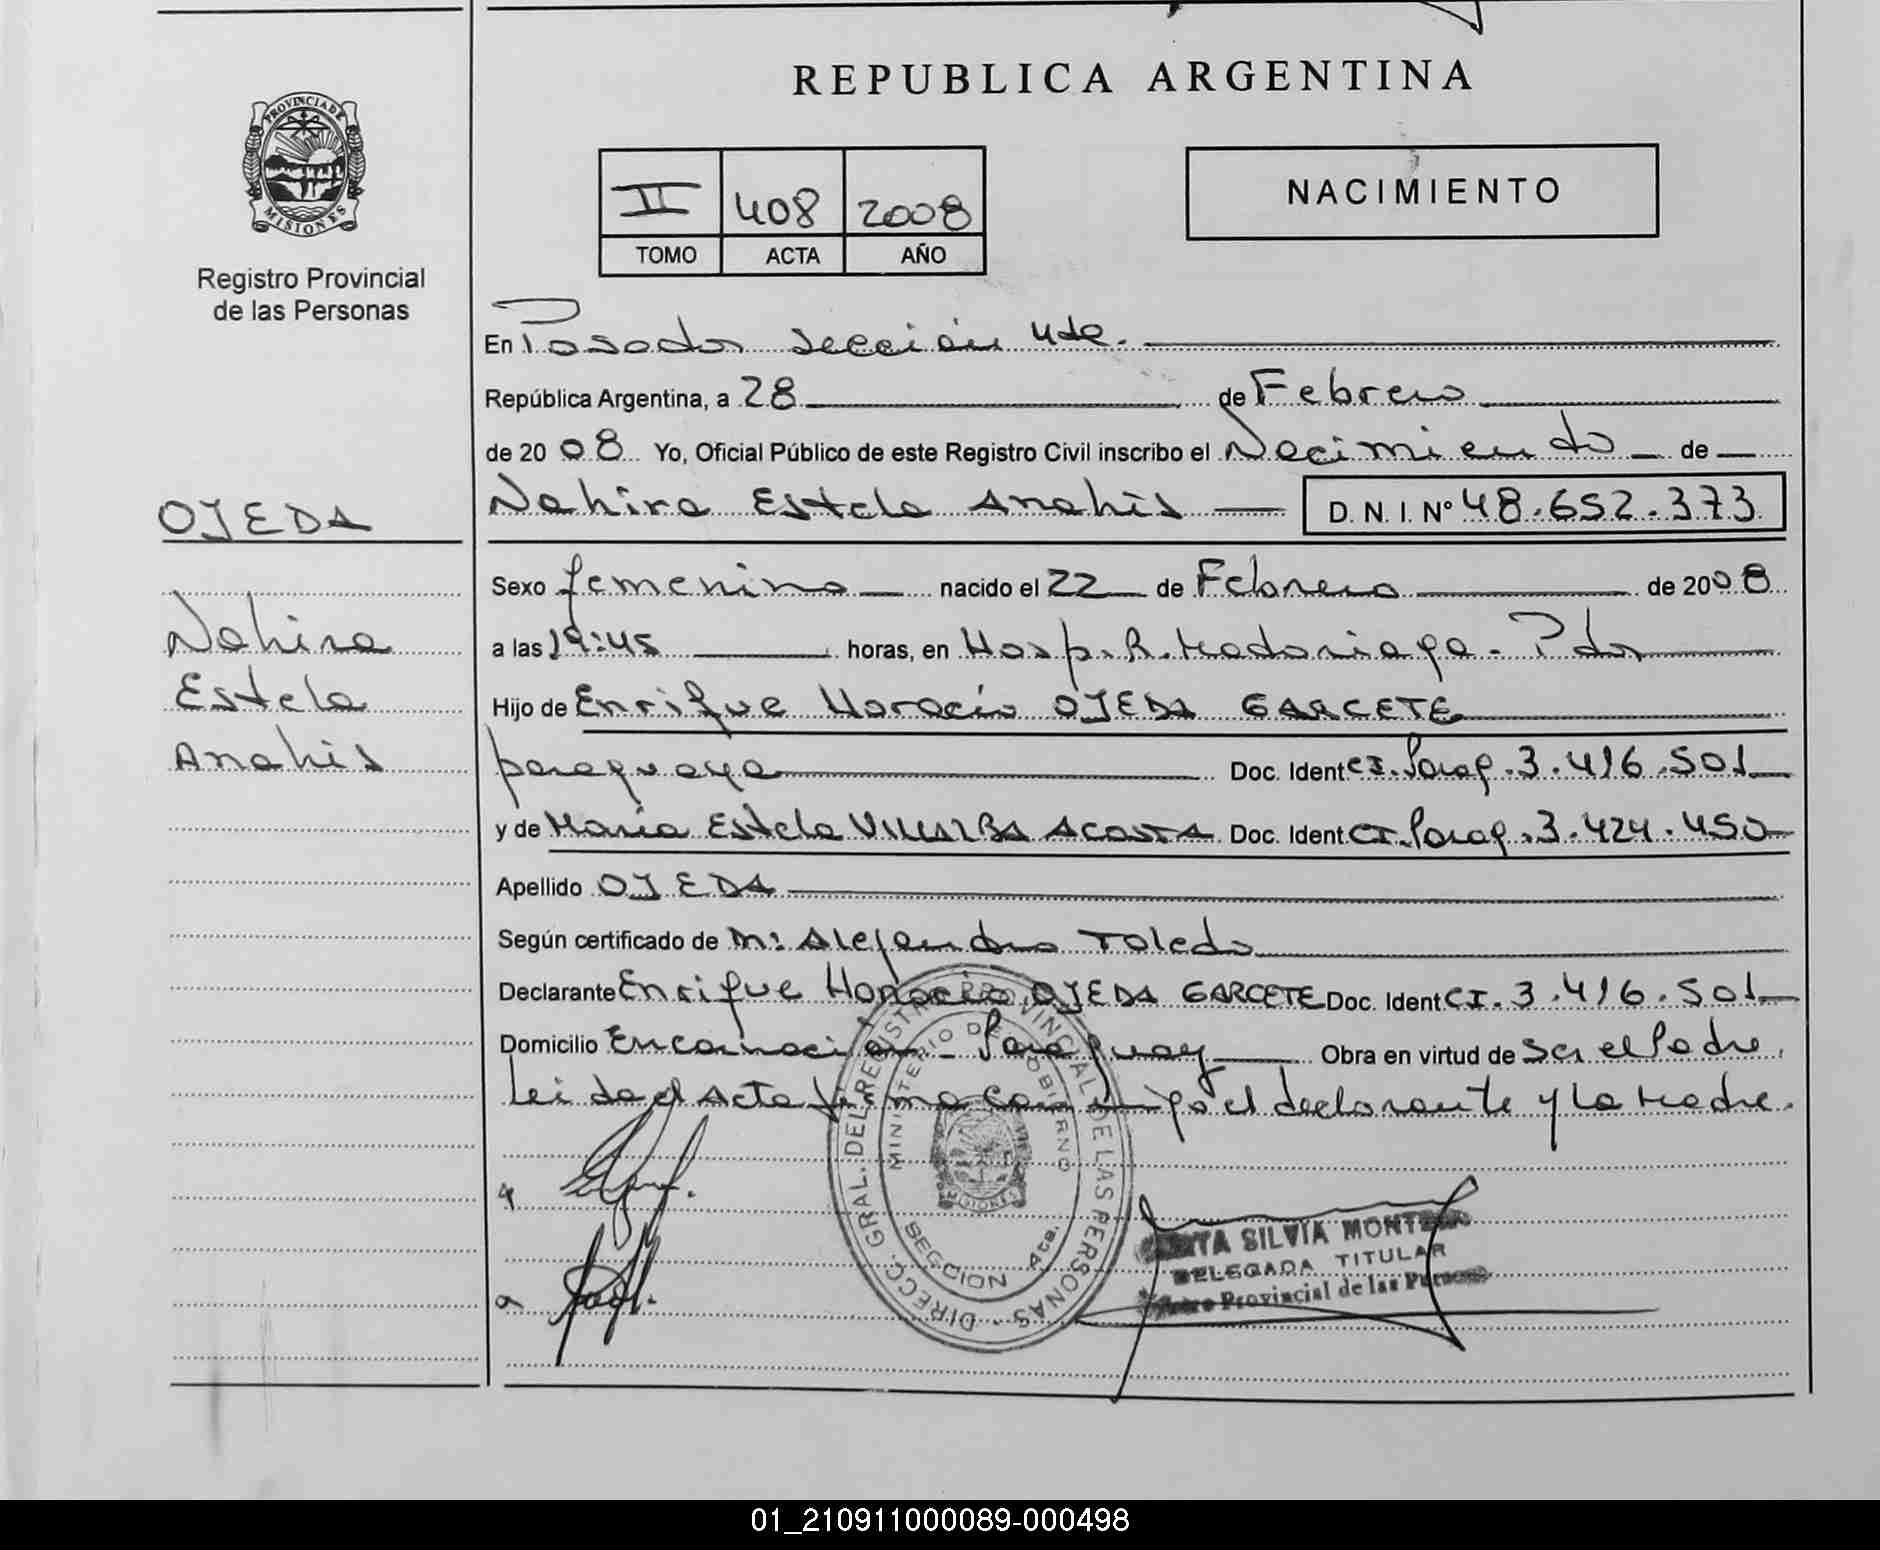 REPUBLICA ARGENTINA
PROVINCIA DE
MISIONES
Registro Provincial
de las Personas
II 408 2008
TOMO ACTA AÑO
NACIMIENTO
En Posadas sección 4ta.
República Argentina, a 28 de Febrero
de 2008 Yo, Oficial Público de este Registro Civil inscribo el Nacimiento de
OJEDA
Nahira Estela Anahis D. N. I. Nº 48.652.373
Sexo femenino nacido el 22 de Febrero de 2008
Nahira
Estela
Anahis
a las 19:45 horas, en Hosp. R. Madariaga - Pdas
Hijo de Enrique Horacio OJEDA GARCETE
paraguaya Doc. Ident CI. Parag. 3.416.501
y de María Estela VILLALBA ACOSTA Doc. Ident CI. Parag. 3.424.450
Apellido OJEDA
Según certificado de M: Alejandra Toledo
Declarante Enrique Horacio OJEDA GARCETE Doc. Ident CI. 3.416.501
Domicilio Encarnación - Paraguay Obra en virtud de Ser el Padre,
Leida el Acta firma conmigo el declarante y la Madre.
DIRECC. GRAL. DEL REGISTRO PROVINCIAL DE LAS PERSONAS
MINISTERIO DE GOBIERNO
MISIONES
SECCION 4ta.
SILVIA
DELEGADA TITULAR
Provincial de las
01_210911000089-000498